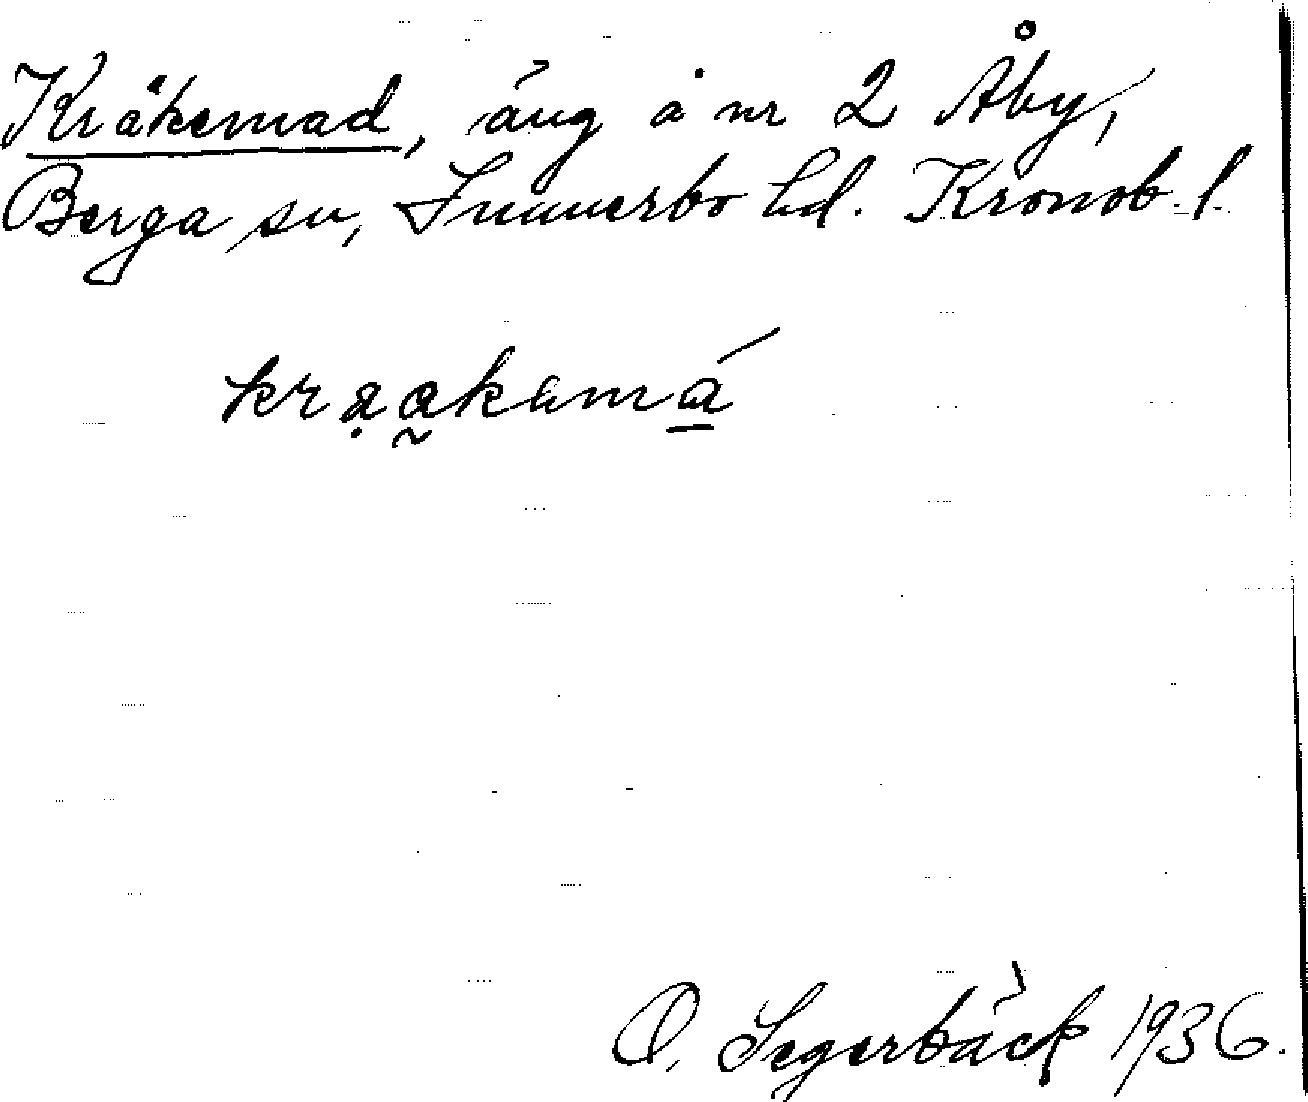 Kråkemad, äng å nr 2 Åby,
Berga sn, Sunnerbo hd. Kronob. l.
O. Segerbäck 1936.